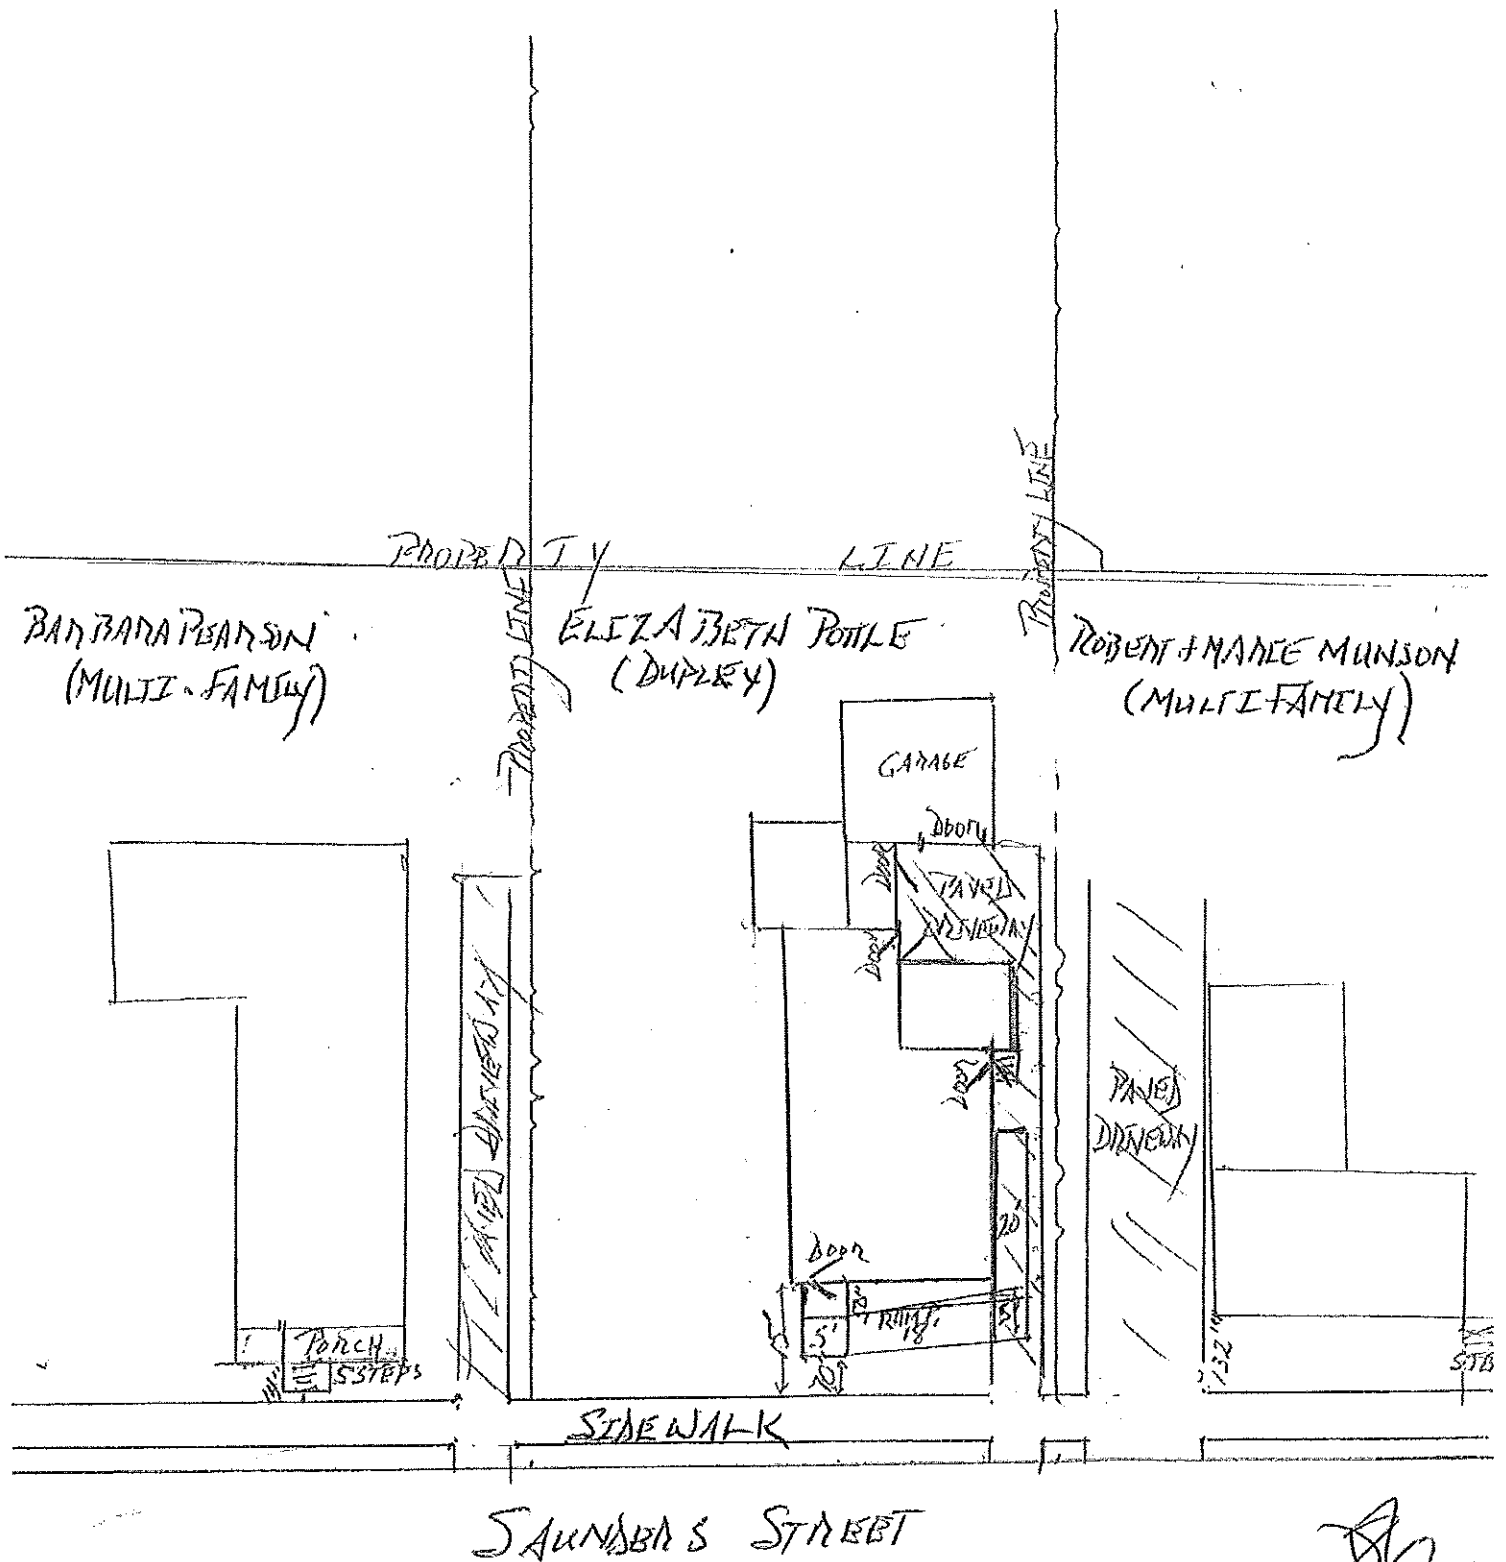 PROPERTY LINE
PROPERTY LINE
PROPERTY LINE
BARBARA PEARSON
(MULTI-FAMILY)
ELIZABETH POTTLE
(DUPLEX)
ROBERT + MARIE MUNSON
(MULTI FAMILY)
GARAGE
DOOR
DOOR
PAVED
DRIVEWAY
DOOR
PAVED DRIVEWAY
DOOR
PAVED
DRIVEWAY
20'
DOOR
RAMP
18'
5'
5'
PORCH
5 STEPS
132"
SIDEWALK
SAUNDERS STREET